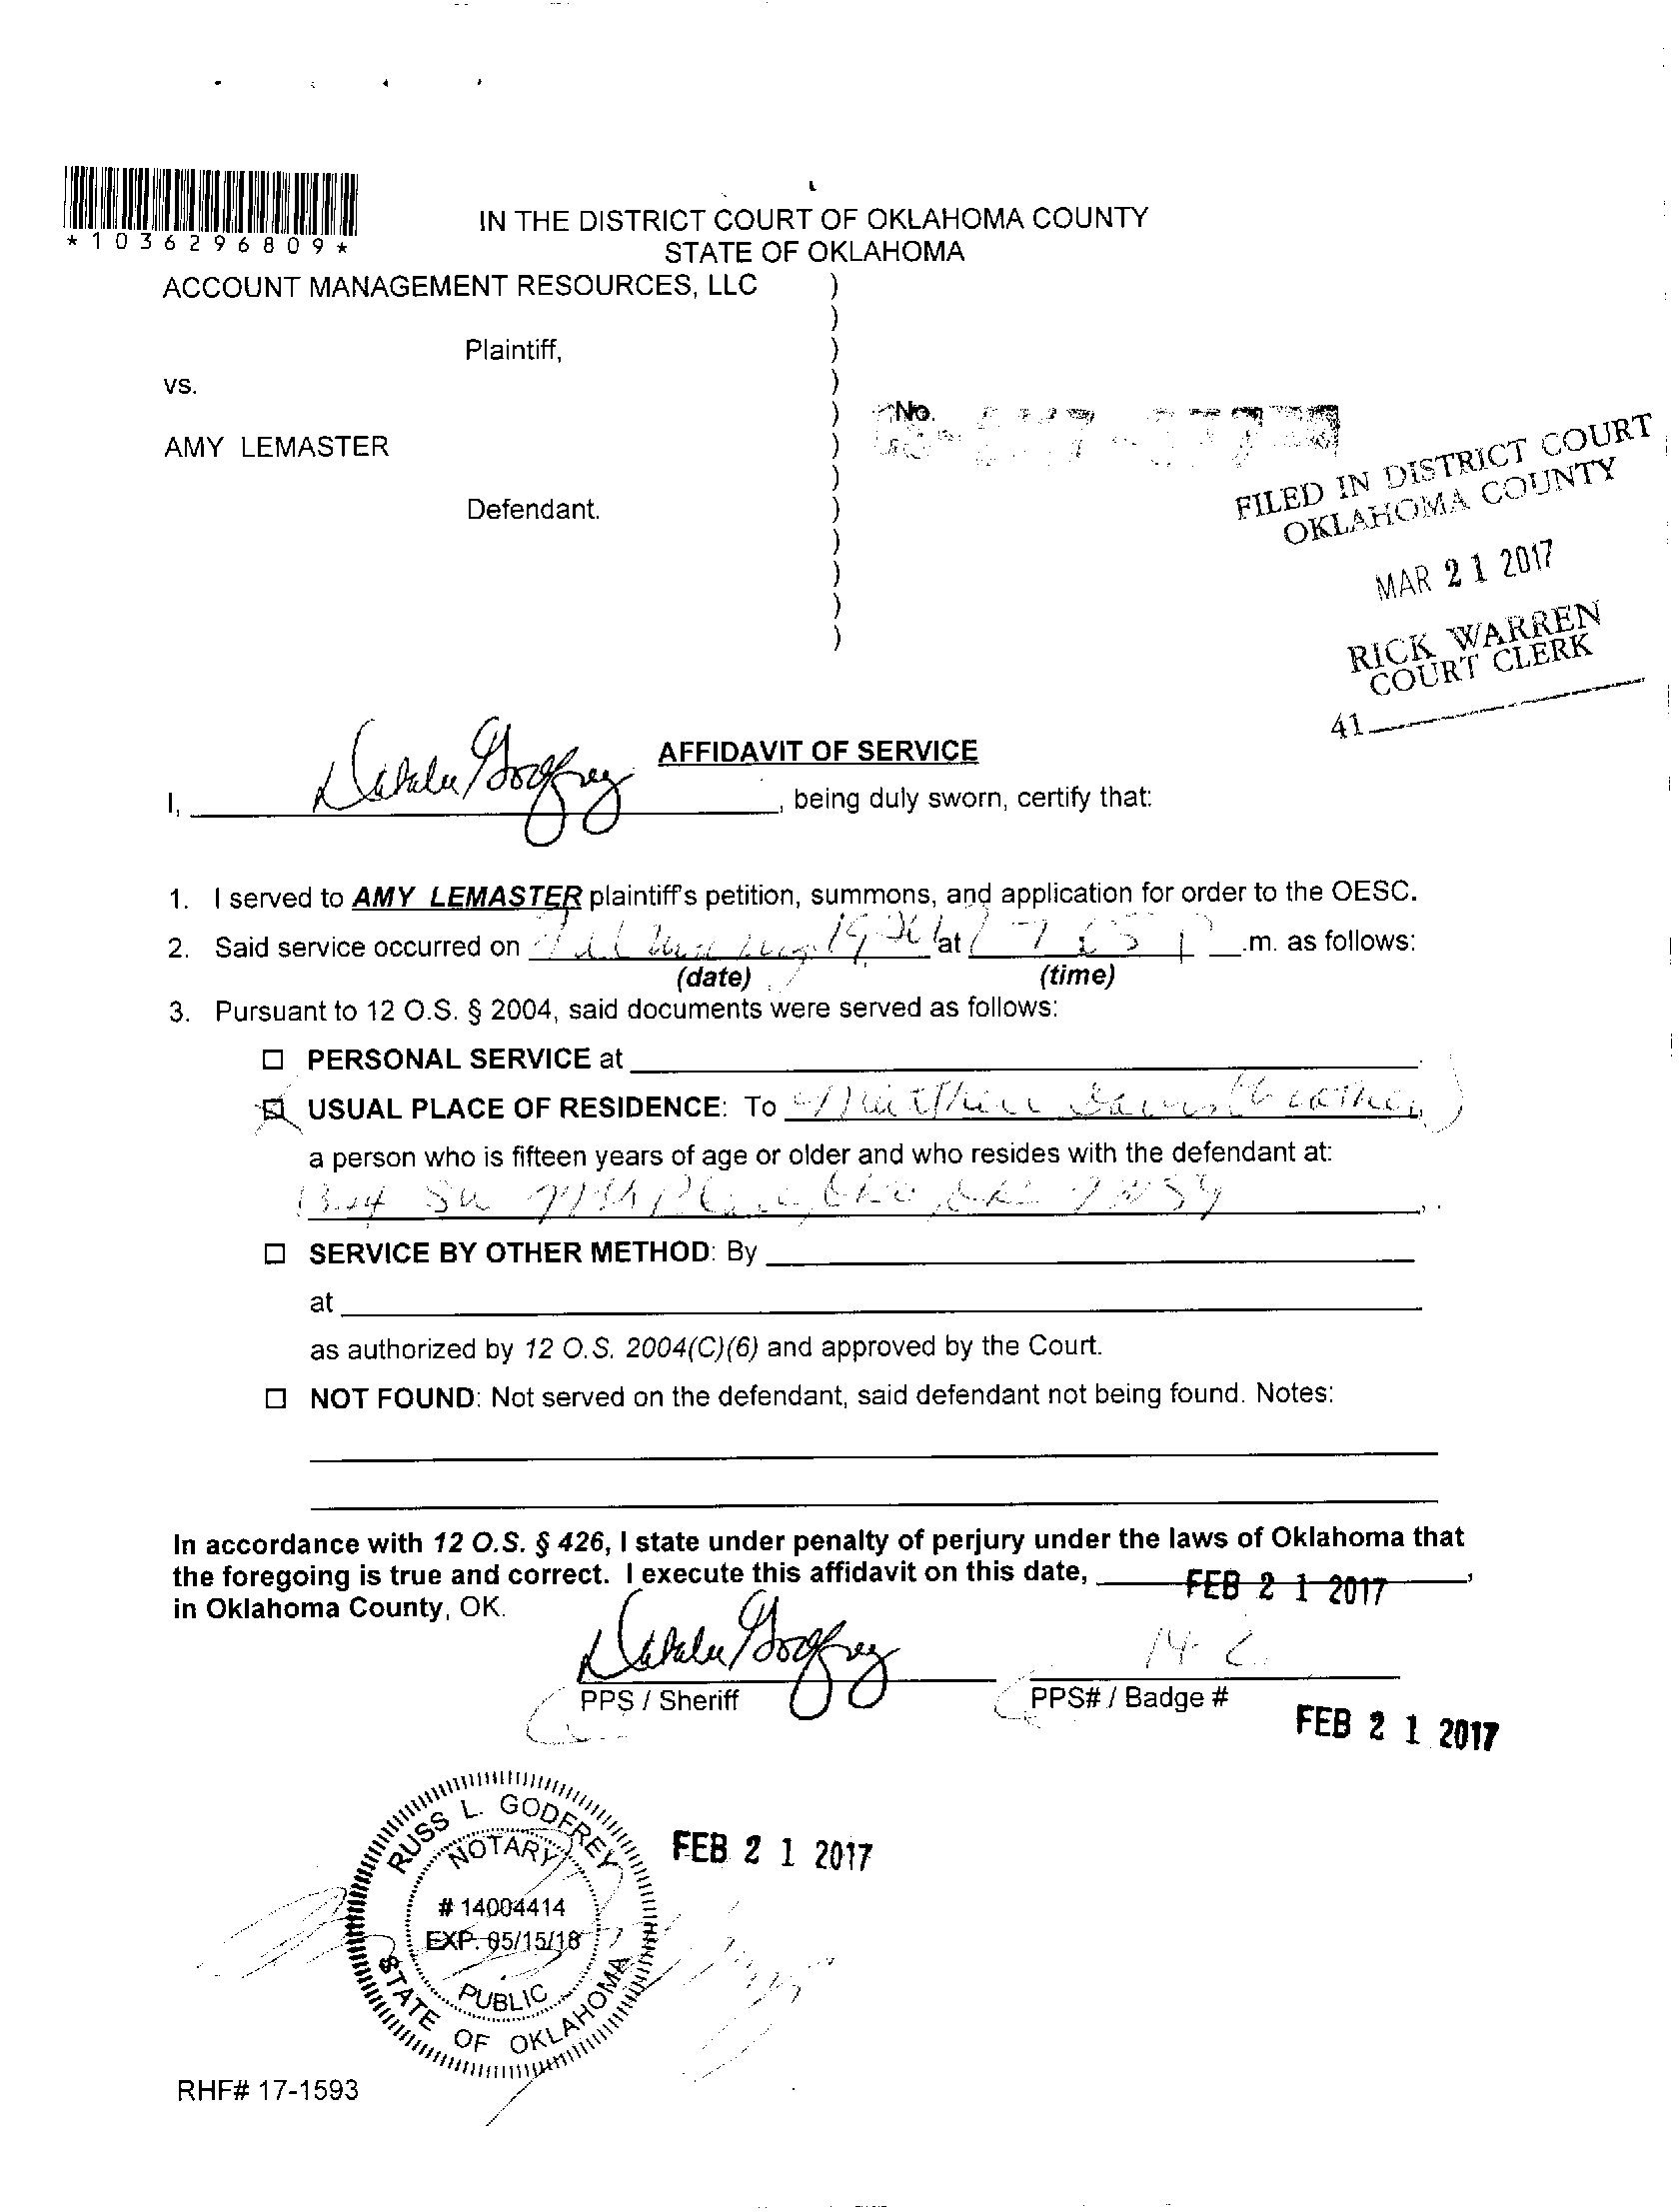 *1036296809*
IN THE DISTRICT COURT OF OKLAHOMA COUNTY
STATE OF OKLAHOMA
ACCOUNT MANAGEMENT RESOURCES, LLC )
)
Plaintiff, )
vs. )
) No.
AMY LEMASTER )
)
Defendant. )
)
)
)
)
FILED IN DISTRICT COURT
OKLAHOMA COUNTY
MAR 21 2017
RICK WARREN
COURT CLERK
41
AFFIDAVIT OF SERVICE
I, Godfrey, being duly sworn, certify that:
1. I served to AMY LEMASTER plaintiff's petition, summons, and application for order to the OESC.
2. Said service occurred on 19 at 7 .m. as follows:
(date) (time)
3. Pursuant to 12 O.S. § 2004, said documents were served as follows:
☐ PERSONAL SERVICE at
☒ USUAL PLACE OF RESIDENCE: To
a person who is fifteen years of age or older and who resides with the defendant at:
☐ SERVICE BY OTHER METHOD: By
at
as authorized by 12 O.S. 2004(C)(6) and approved by the Court.
☐ NOT FOUND: Not served on the defendant, said defendant not being found. Notes:
In accordance with 12 O.S. § 426, I state under penalty of perjury under the laws of Oklahoma that
the foregoing is true and correct. I execute this affidavit on this date, FEB 21 2017,
in Oklahoma County, OK.
Godfrey
PPS / Sheriff PPS# / Badge #
FEB 21 2017
RUSS L. GODFREY
NOTARY
# 14004414
EXP. 05/15/18
PUBLIC
STATE OF OKLAHOMA
FEB 21 2017
RHF# 17-1593